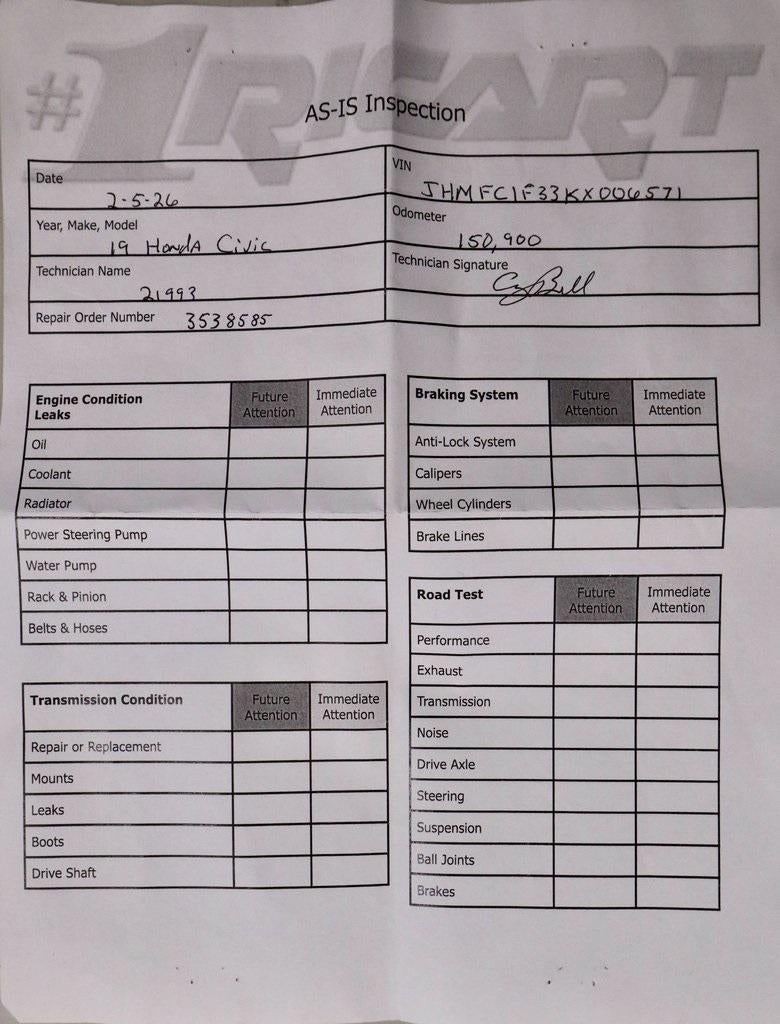 #1 RICART
AS-IS Inspection
Date 2-5-26
VIN JHMFC1F33KX006571
Year, Make, Model 19 Honda Civic
Odometer 150,900
Technician Name 21993
Technician Signature
Repair Order Number 3538585
Engine Condition Leaks Future Attention Immediate Attention
Oil
Coolant
Radiator
Power Steering Pump
Water Pump
Rack & Pinion
Belts & Hoses
Transmission Condition Future Attention Immediate Attention
Repair or Replacement
Mounts
Leaks
Boots
Drive Shaft
Braking System Future Attention Immediate Attention
Anti-Lock System
Calipers
Wheel Cylinders
Brake Lines
Road Test Future Attention Immediate Attention
Performance
Exhaust
Transmission
Noise
Drive Axle
Steering
Suspension
Ball Joints
Brakes